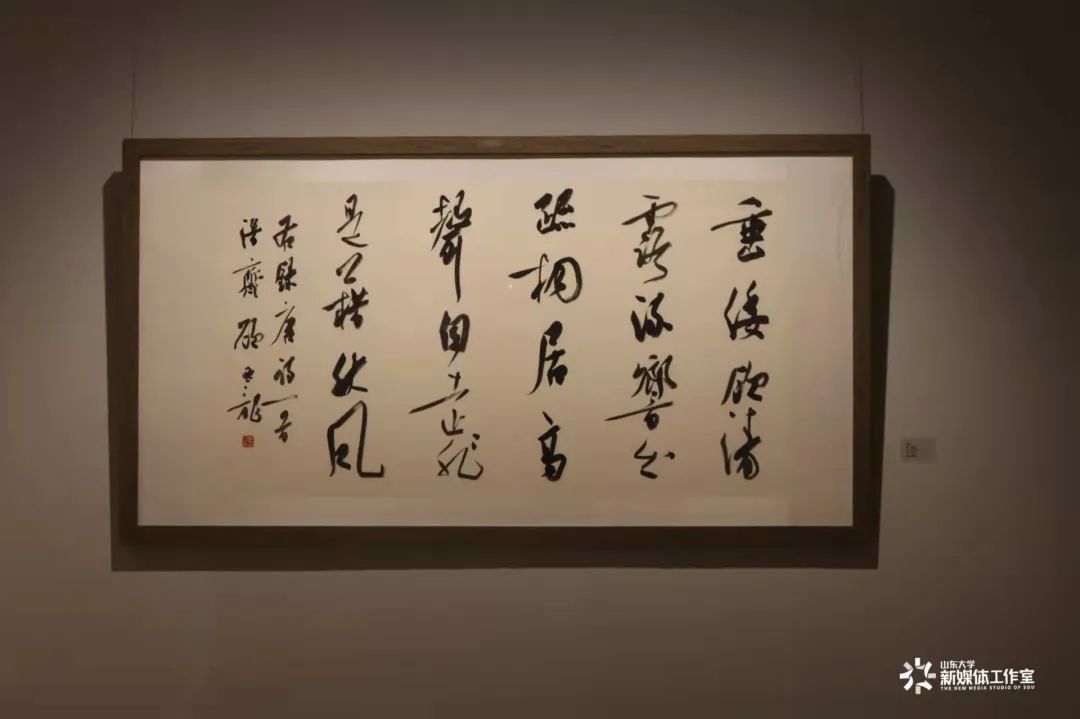 垂緌飲清
露流響出
疏桐居高
聲自遠非
是藉秋風
右録唐詩一首
齋 顧亞龍
山东大学
新媒体工作室
THE NEW MEDIA STUDIO OF SDU